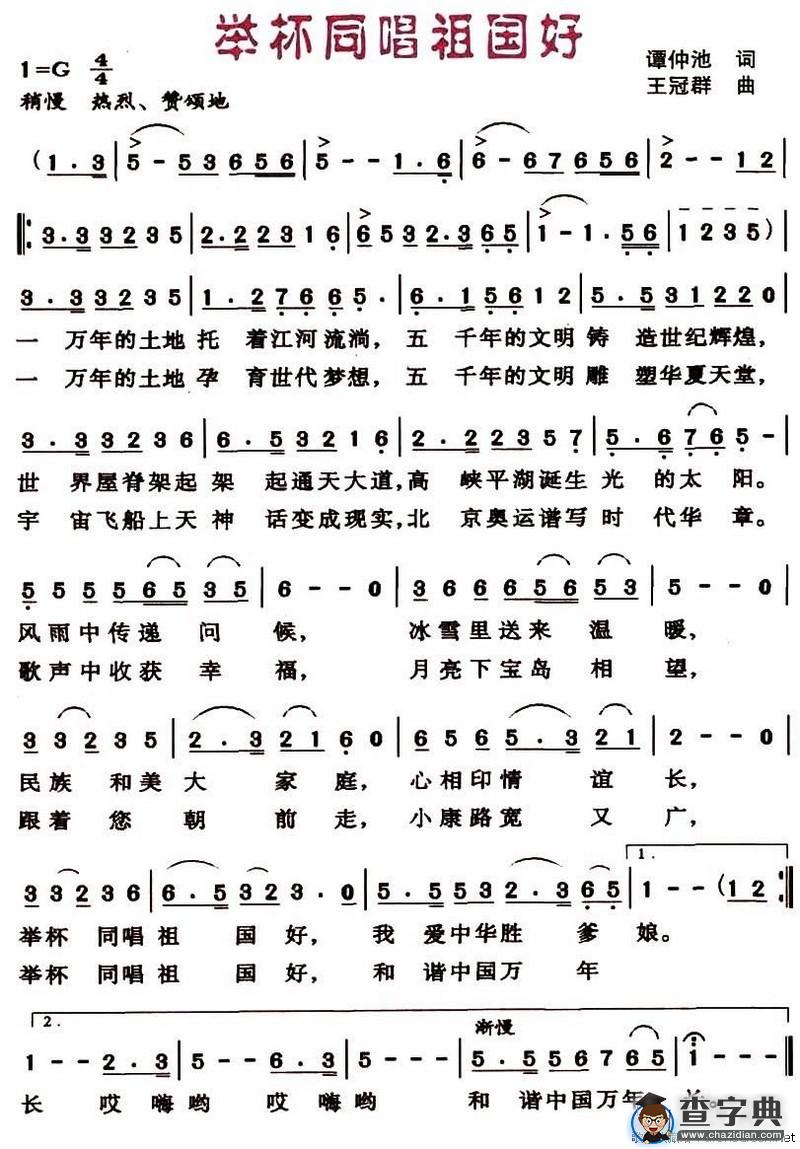 举杯同唱祖国好
1=G 4/4
谭仲池 词
稍慢 热烈、赞颂地
王冠群 曲
(1·3 | 5-53656 | 5--1·6 | 6-67656 | 2--12
‖: 3·33235 | 2·22316 | 6532·365 | 1-1·56 | 1235)
3·33235 | 1·27665· | 6·15612 | 5·531220
一 万年的土地 托 着江河流淌, 五 千年的文明 铸 造世纪辉煌,
一 万年的土地 孕 育世代梦想, 五 千年的文明 雕 塑华夏天堂,
3·33236 | 6·53216 | 2·22357 | 5·6765-
世 界屋脊架起 架 起通天大道, 高 峡平湖诞生 光 的太 阳。
宇 宙飞船上天 神 话变成现实, 北 京奥运谱写 时 代华 章。
55556535 | 6--0 | 36665653 | 5--0
风雨中传递 问 候, 冰雪里送来 温 暖,
歌声中收获 幸 福, 月亮下宝岛 相 望,
33235 | 2·32160 | 6565·321 | 2--0
民族 和美大 家 庭, 心相印情 谊 长,
跟着 您 朝 前 走, 小康路宽 又 广,
1.
33236 | 6·5323·0 | 5·5532·365 | 1--(12 :‖
举杯 同唱祖 国 好, 我 爱中华胜 爹 娘。
举杯 同唱祖 国 好, 和 谐中国万 年
2.
渐慢
1--2·3 | 5--6·3 | 5·556765 | 1-- ‖
长 哎嗨哟 哎嗨哟 和 谐中国万年
查字典
www.chazidian.com